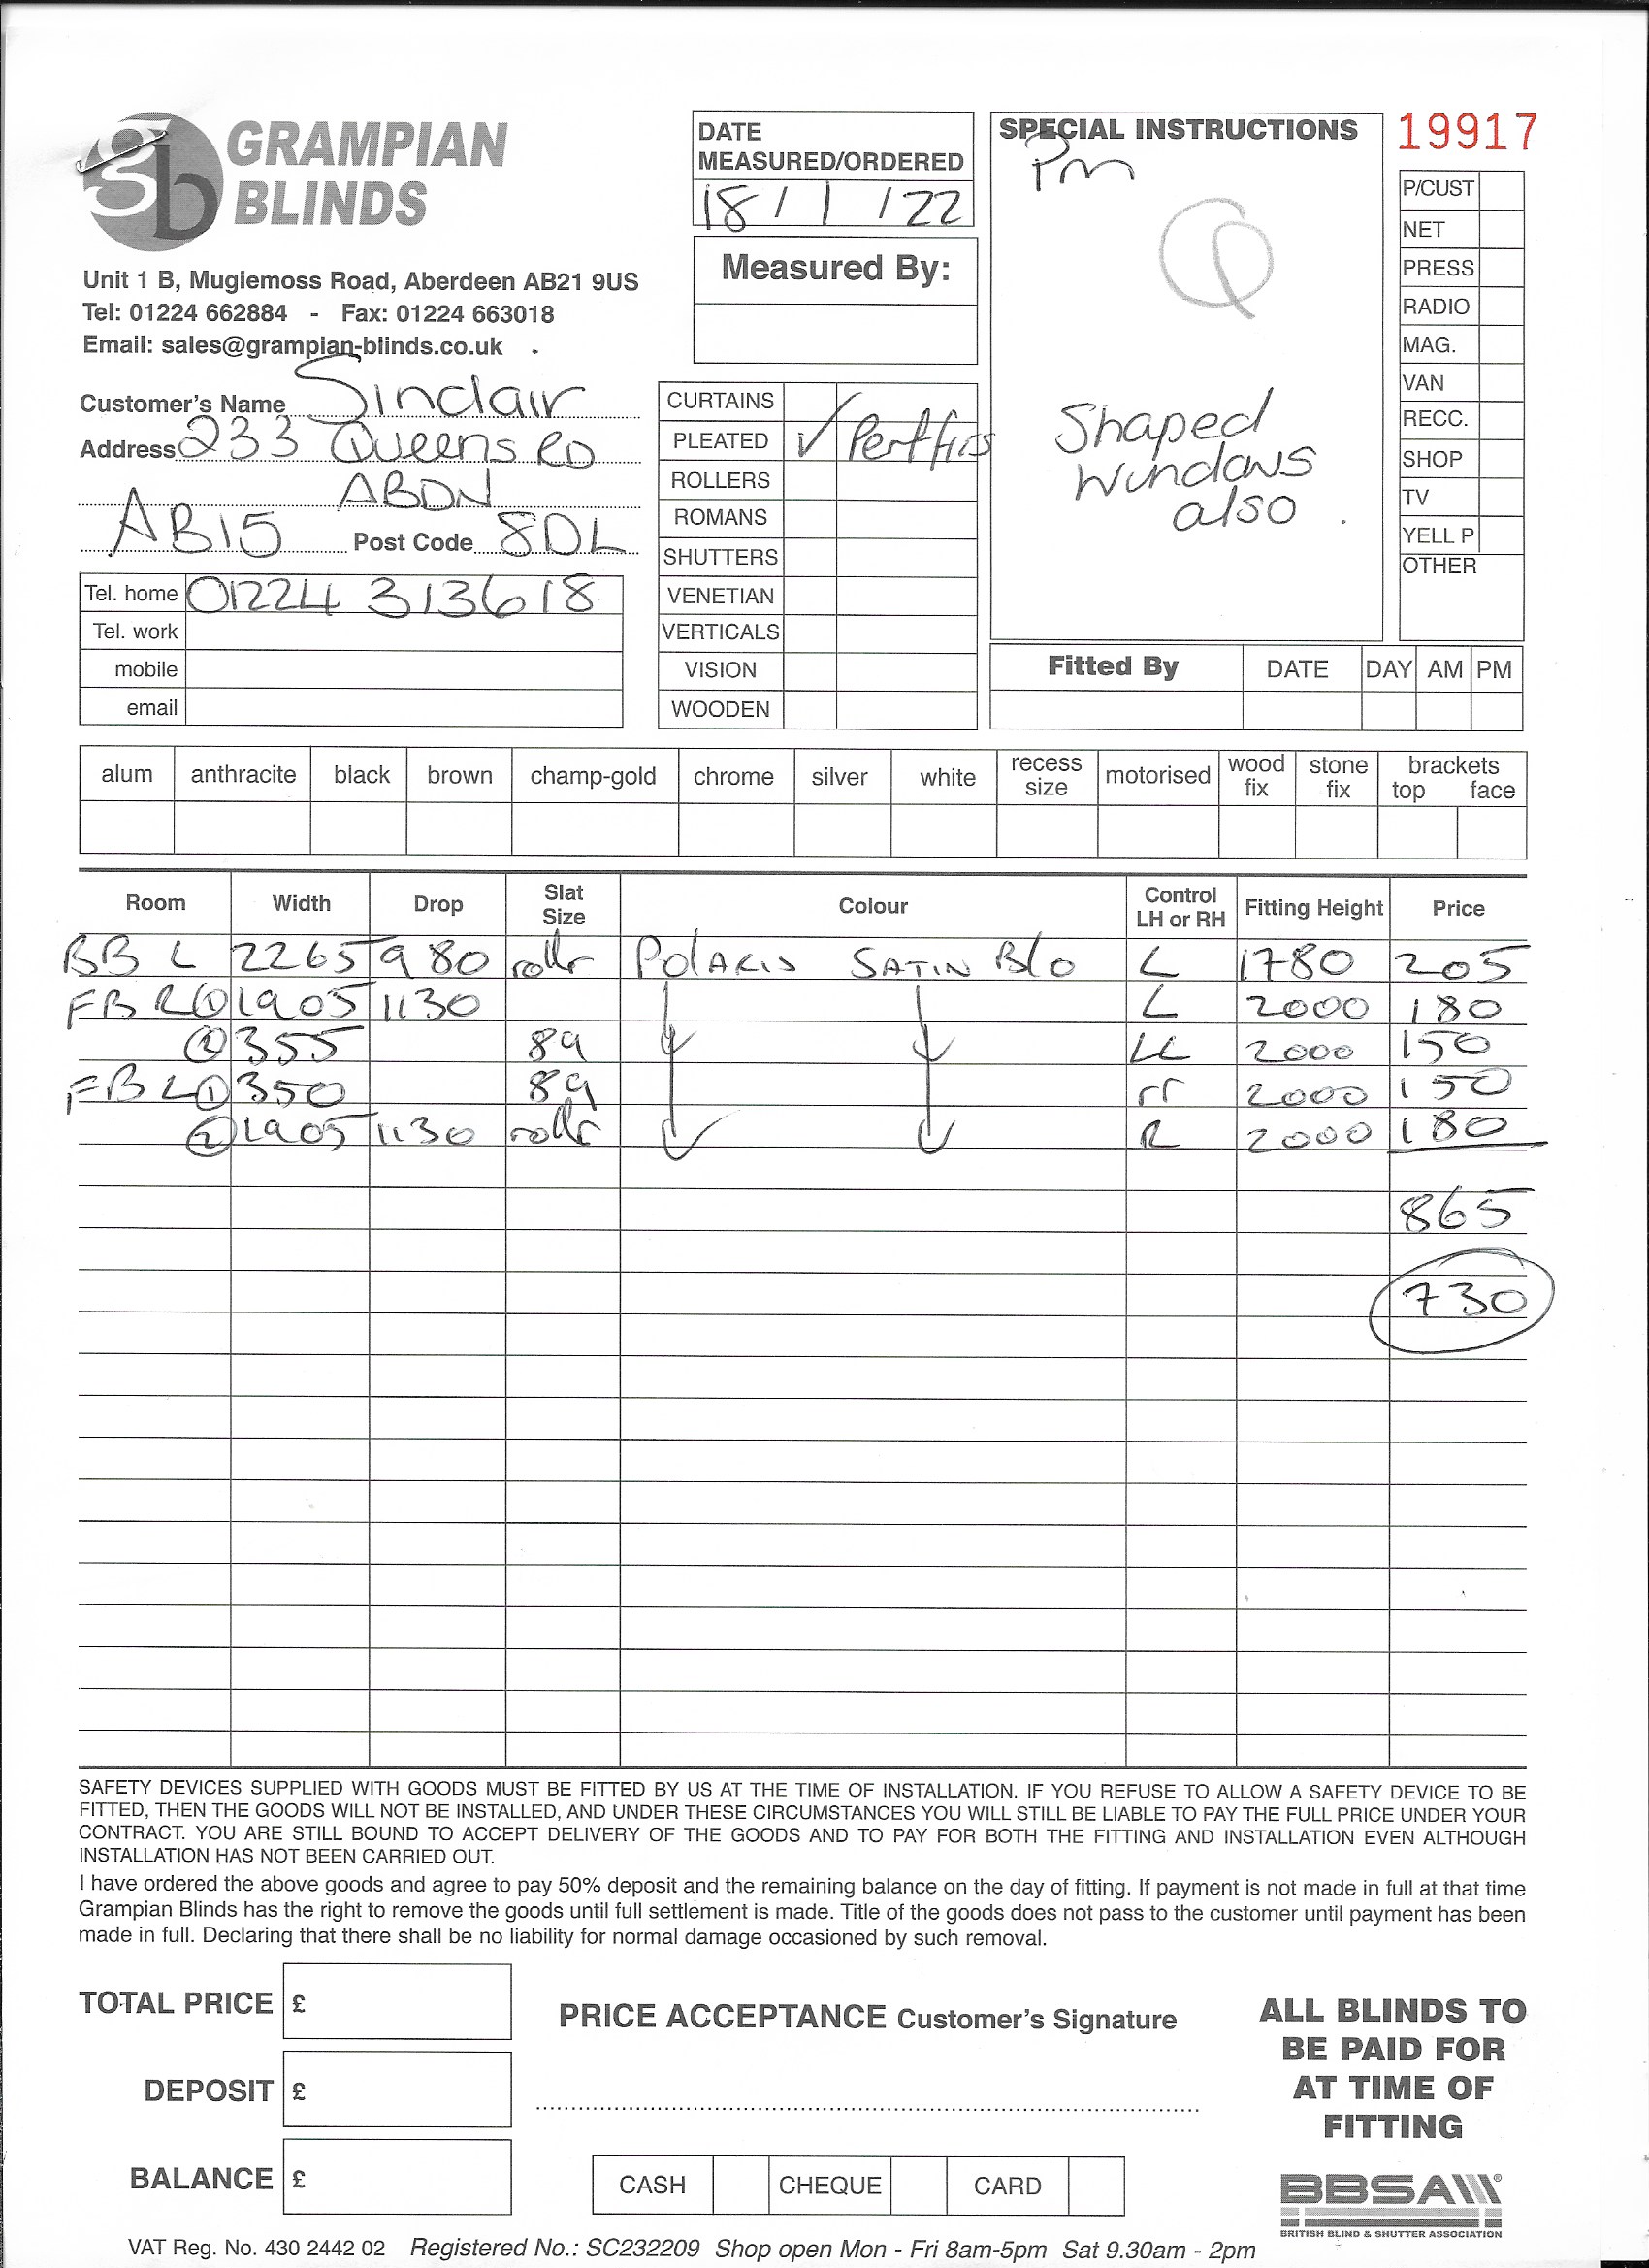 gb GRAMPIAN BLINDS
Unit 1 B, Mugiemoss Road, Aberdeen AB21 9US
Tel: 01224 662884 - Fax: 01224 663018
Email: sales@grampian-blinds.co.uk
Customer's Name Sinclair
Address 233 Queens RD
ABDN
AB15 Post Code 8DL
Tel. home 01224 313618
Tel. work
mobile
email
DATE
MEASURED/ORDERED
18 / 1 / 22
Measured By:
CURTAINS
PLEATED ✓ Perffits
ROLLERS
ROMANS
SHUTTERS
VENETIAN
VERTICALS
VISION
WOODEN
SPECIAL INSTRUCTIONS
Pm
Q
Shaped
Windows
also.
19917
P/CUST
NET
PRESS
RADIO
MAG.
VAN
RECC.
SHOP
TV
YELL P
OTHER
Fitted By DATE DAY AM PM
alum anthracite black brown champ-gold chrome silver white recess size motorised wood fix stone fix brackets top face
Room Width Drop Slat Size Colour Control LH or RH Fitting Height Price
BB L 2265 980 rollr POLARIS SATIN Blo L 1780 205
FB R ① 1905 1130 L 2000 180
② 355 89 LL 2000 150
FB L ① 350 89 rr 2000 150
② 1905 1130 rollr R 2000 180
865
730
SAFETY DEVICES SUPPLIED WITH GOODS MUST BE FITTED BY US AT THE TIME OF INSTALLATION. IF YOU REFUSE TO ALLOW A SAFETY DEVICE TO BE
FITTED, THEN THE GOODS WILL NOT BE INSTALLED, AND UNDER THESE CIRCUMSTANCES YOU WILL STILL BE LIABLE TO PAY THE FULL PRICE UNDER YOUR
CONTRACT. YOU ARE STILL BOUND TO ACCEPT DELIVERY OF THE GOODS AND TO PAY FOR BOTH THE FITTING AND INSTALLATION EVEN ALTHOUGH
INSTALLATION HAS NOT BEEN CARRIED OUT.
I have ordered the above goods and agree to pay 50% deposit and the remaining balance on the day of fitting. If payment is not made in full at that time
Grampian Blinds has the right to remove the goods until full settlement is made. Title of the goods does not pass to the customer until payment has been
made in full. Declaring that there shall be no liability for normal damage occasioned by such removal.
TOTAL PRICE £
DEPOSIT £
BALANCE £
PRICE ACCEPTANCE Customer's Signature
CASH CHEQUE CARD
ALL BLINDS TO
BE PAID FOR
AT TIME OF
FITTING
BBSA
BRITISH BLIND & SHUTTER ASSOCIATION
VAT Reg. No. 430 2442 02 Registered No.: SC232209 Shop open Mon - Fri 8am-5pm Sat 9.30am - 2pm